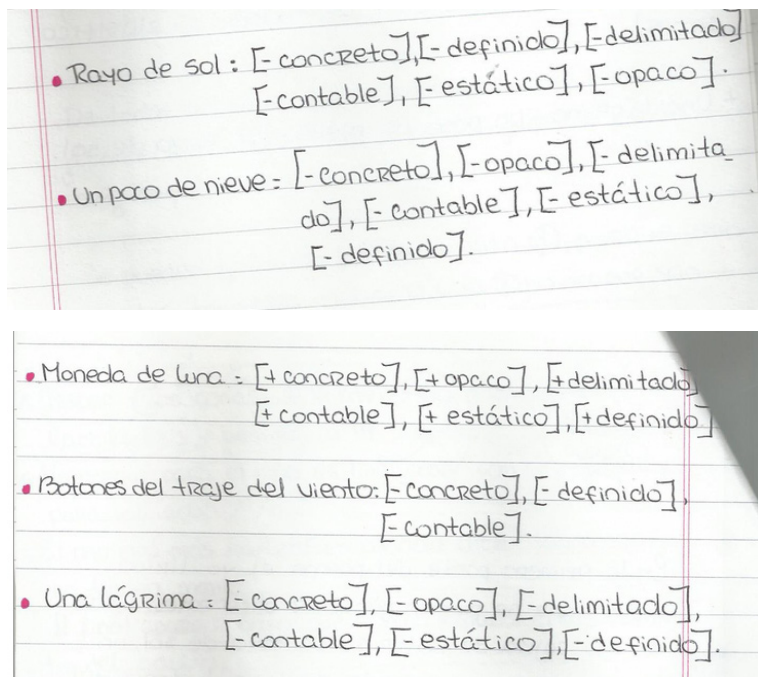 • Rayo de sol: [-concreto],[-definido],[-delimitado]
[-contable], [-estático], [-opaco].
• Un poco de nieve: [-concreto], [-opaco], [-delimita_
do], [-contable], [-estático],
[-definido].
• Moneda de luna: [+concreto], [+opaco], [+delimitado]
[+contable], [+estático], [+definido]
• Botones del traje del viento: [-concreto], [-definido],
[-contable].
• Una lágrima: [-concreto], [-opaco], [-delimitado],
[-contable], [-estático], [-definido].